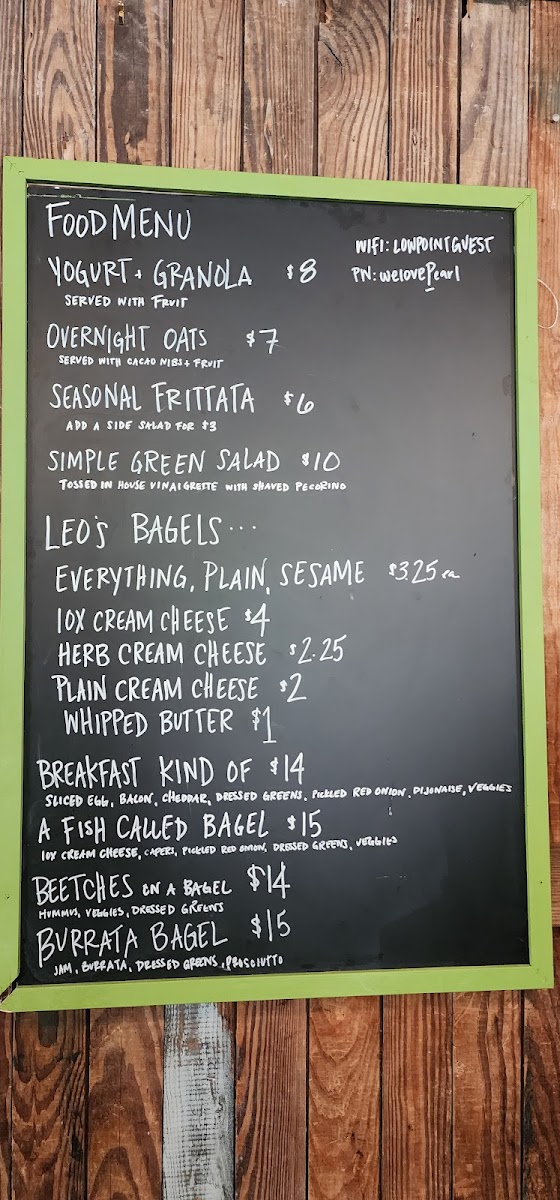 FOOD MENU
WIFI: LOWPOINTGUEST
PN: welovePearl
YOGURT + GRANOLA $8
SERVED WITH FRUIT
OVERNIGHT OATS $7
SERVED WITH CACAO NIBS + FRUIT
SEASONAL FRITTATA $6
ADD A SIDE SALAD FOR $3
SIMPLE GREEN SALAD $10
TOSSED IN HOUSE VINAIGRETTE WITH SHAVED PECORINO
LEO'S BAGELS...
EVERYTHING, PLAIN, SESAME $3.25 ea
LOX CREAM CHEESE $4
HERB CREAM CHEESE $2.25
PLAIN CREAM CHEESE $2
WHIPPED BUTTER $1
BREAKFAST KIND OF $14
SLICED EGG, BACON, CHEDDAR, DRESSED GREENS, PICKLED RED ONION, DIJONAISE, VEGGIES
A FISH CALLED BAGEL $15
LOX CREAM CHEESE, CAPERS, PICKLED RED ONION, DRESSED GREENS, VEGGIES
BEETCHES ON A BAGEL $14
HUMMUS, VEGGIES, DRESSED GREENS
BURRATA BAGEL $15
JAM, BURRATA, DRESSED GREENS, PROSCIUTTO